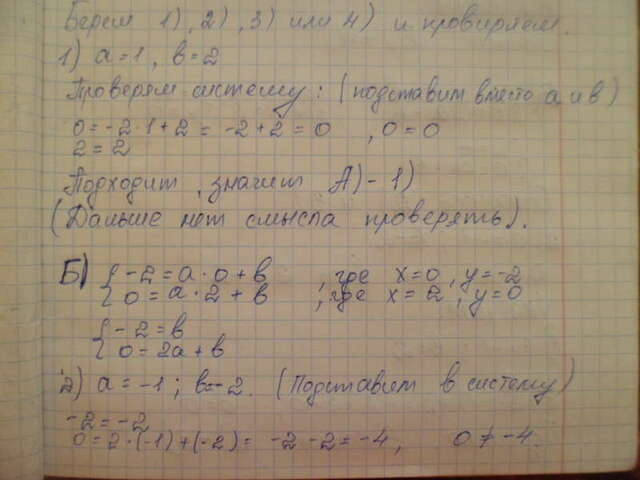 Берем 1), 2), 3) или 4) и проверяем.
1) a=1, в=2
Проверям систему: (подставим вместо а и в)
0=-2·1+2=-2+2=0 , 0=0
2=2
Подходит, значит А)-1)
(Дальше нет смысла проверять).
Б) { -2=a·0+в , где x=0, y=-2
{ 0=a·2+в , где x=2, y=0
{ -2=в
{ 0=2a+в
2) a=-1; в=-2. (Подставим в систему)
-2=-2
0=2·(-1)+(-2)= -2-2=-4, 0≠-4.